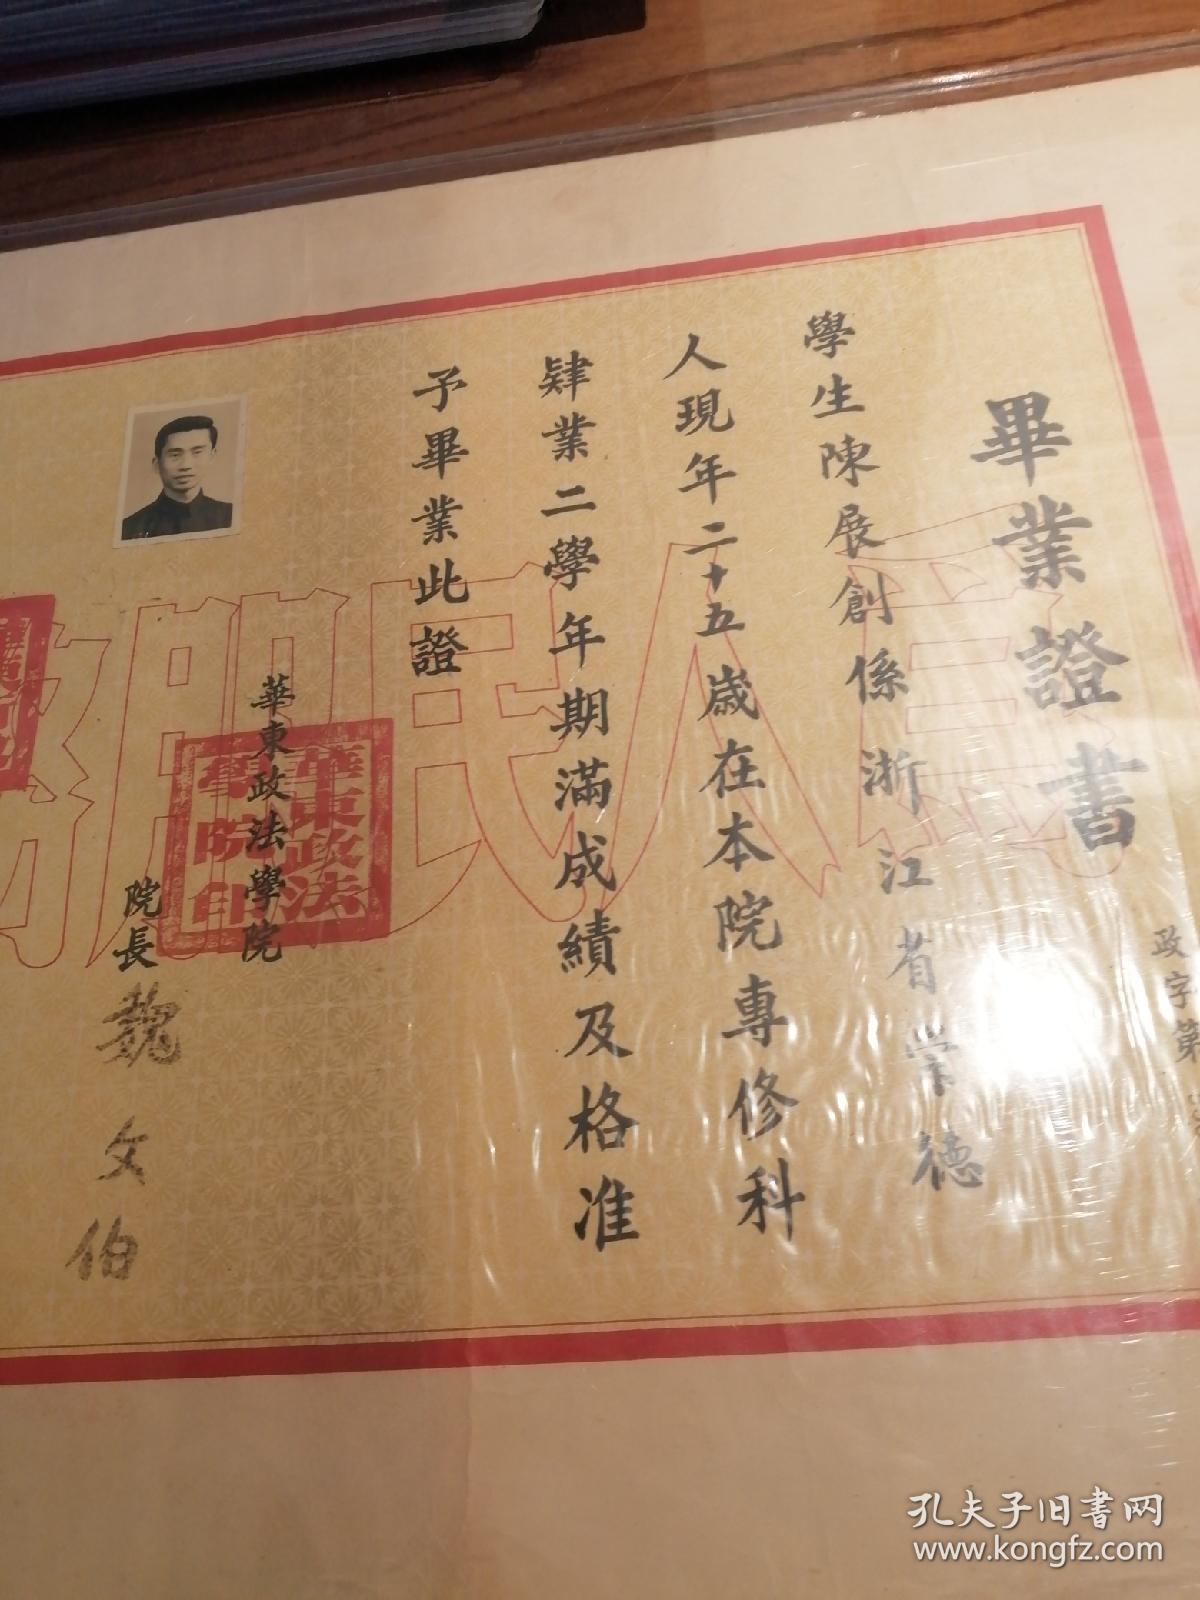 畢業證書
政字第
學生陳展創係浙江省崇德
人現年二十五歲在本院專修科
肄業二學年期滿成績及格准
予畢業此證
華東政法學院
院長魏文伯
華東政法
學院印
為人民服務
孔夫子旧书网
www.kongfz.com